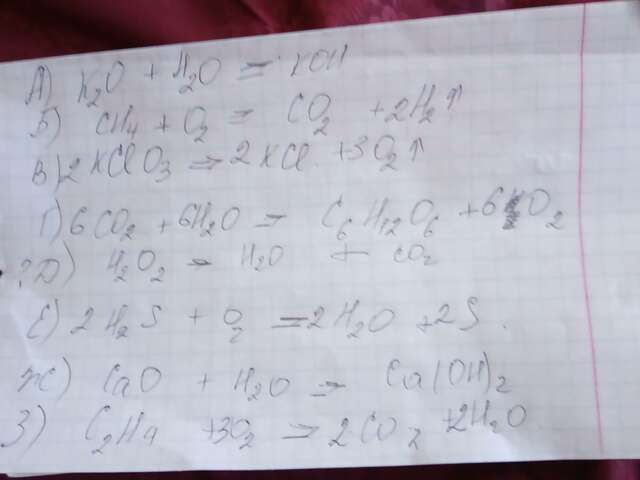 А) K₂O + H₂O = KOH
Б) CH₄ + O₂ = CO₂ + 2H₂↑
В) 2KClO₃ → 2KCl + 3O₂↑
Г) 6CO₂ + 6H₂O = C₆H₁₂O₆ + 6O₂
?Д) H₂O₂ = H₂O + CO₂
Е) 2H₂S + O₂ = 2H₂O + 2S.
Ж) CaO + H₂O → Ca(OH)₂
З) C₂H₄ + 3O₂ → 2CO₂ + 2H₂O